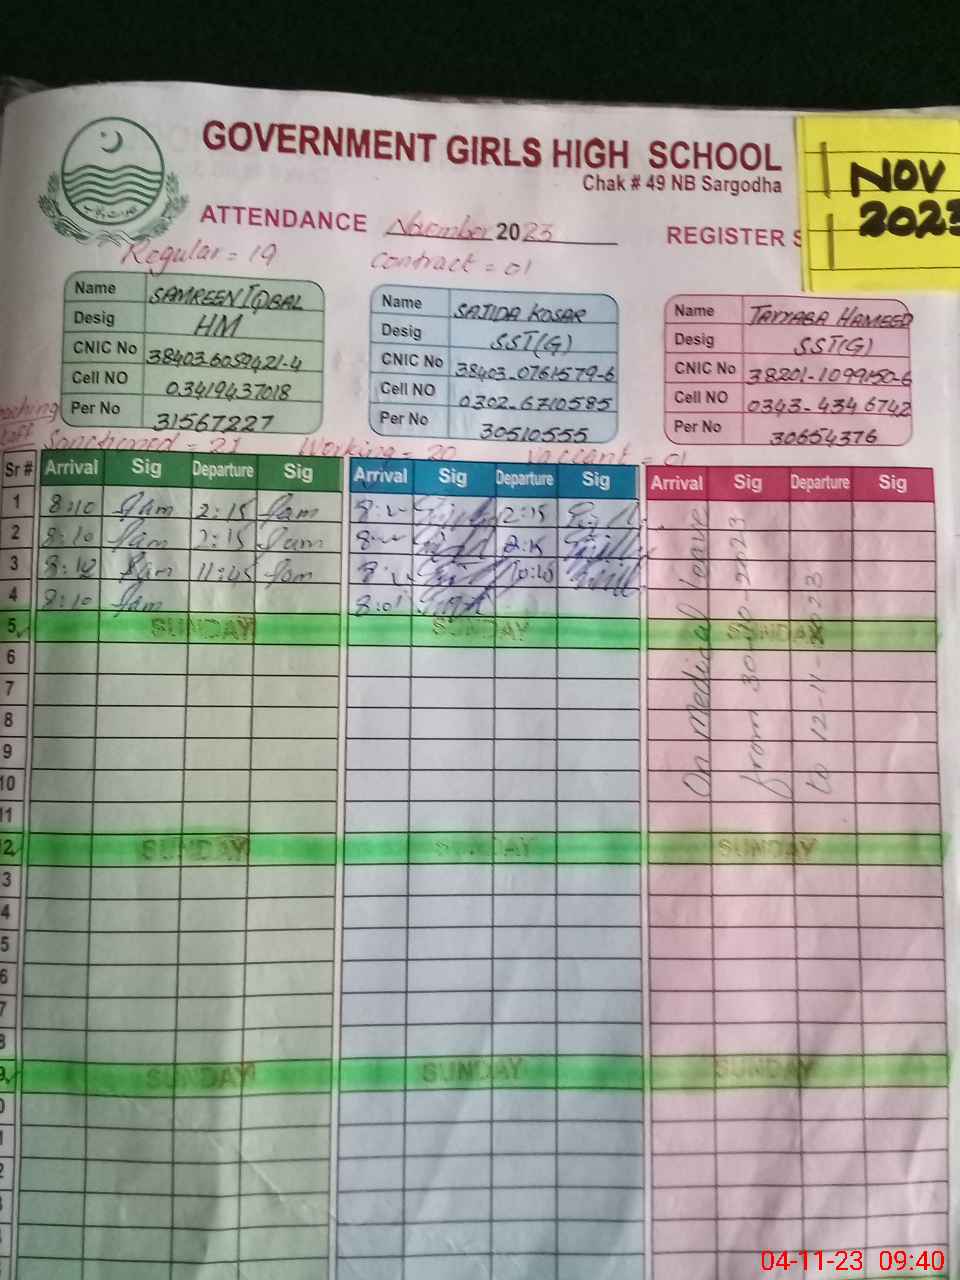 GOVERNMENT GIRLS HIGH SCHOOL
Chak # 49 NB Sargodha
NOV
2023
ATTENDANCE November 2023 REGISTER S
Regular = 19 Contract = 01
Name SAMREEN IQBAL
Desig HM
CNIC No 38403-6059421-4
Cell NO 03419437018
Per No 31567227
Name SAJIDA KOSAR
Desig SST(G)
CNIC No 38403-0761579-6
Cell NO 0302-6710585
Per No 30510555
Name TAYYABA HAMEED
Desig SST(G)
CNIC No 38201-1099150-6
Cell NO 0343-4346742
Per No 30654376
Sanctioned = 21 Working = 20 Vaccant = 01
Sr # Arrival Sig Departure Sig Arrival Sig Departure Sig Arrival Sig Departure Sig
1 8:10 2:15 2:15
2 8:10 2:15
3 8:10 11:45
4 8:10 8:01
5 SUNDAY SUNDAY SUNDAY
6
7
8
9
10
11
2 SUNDAY SUNDAY SUNDAY
3
4
5
6
7
8
9 SUNDAY SUNDAY SUNDAY
0
1
2
3
On medical leave
from 30-10-2023
to 12-11-2023
04-11-23 09:40